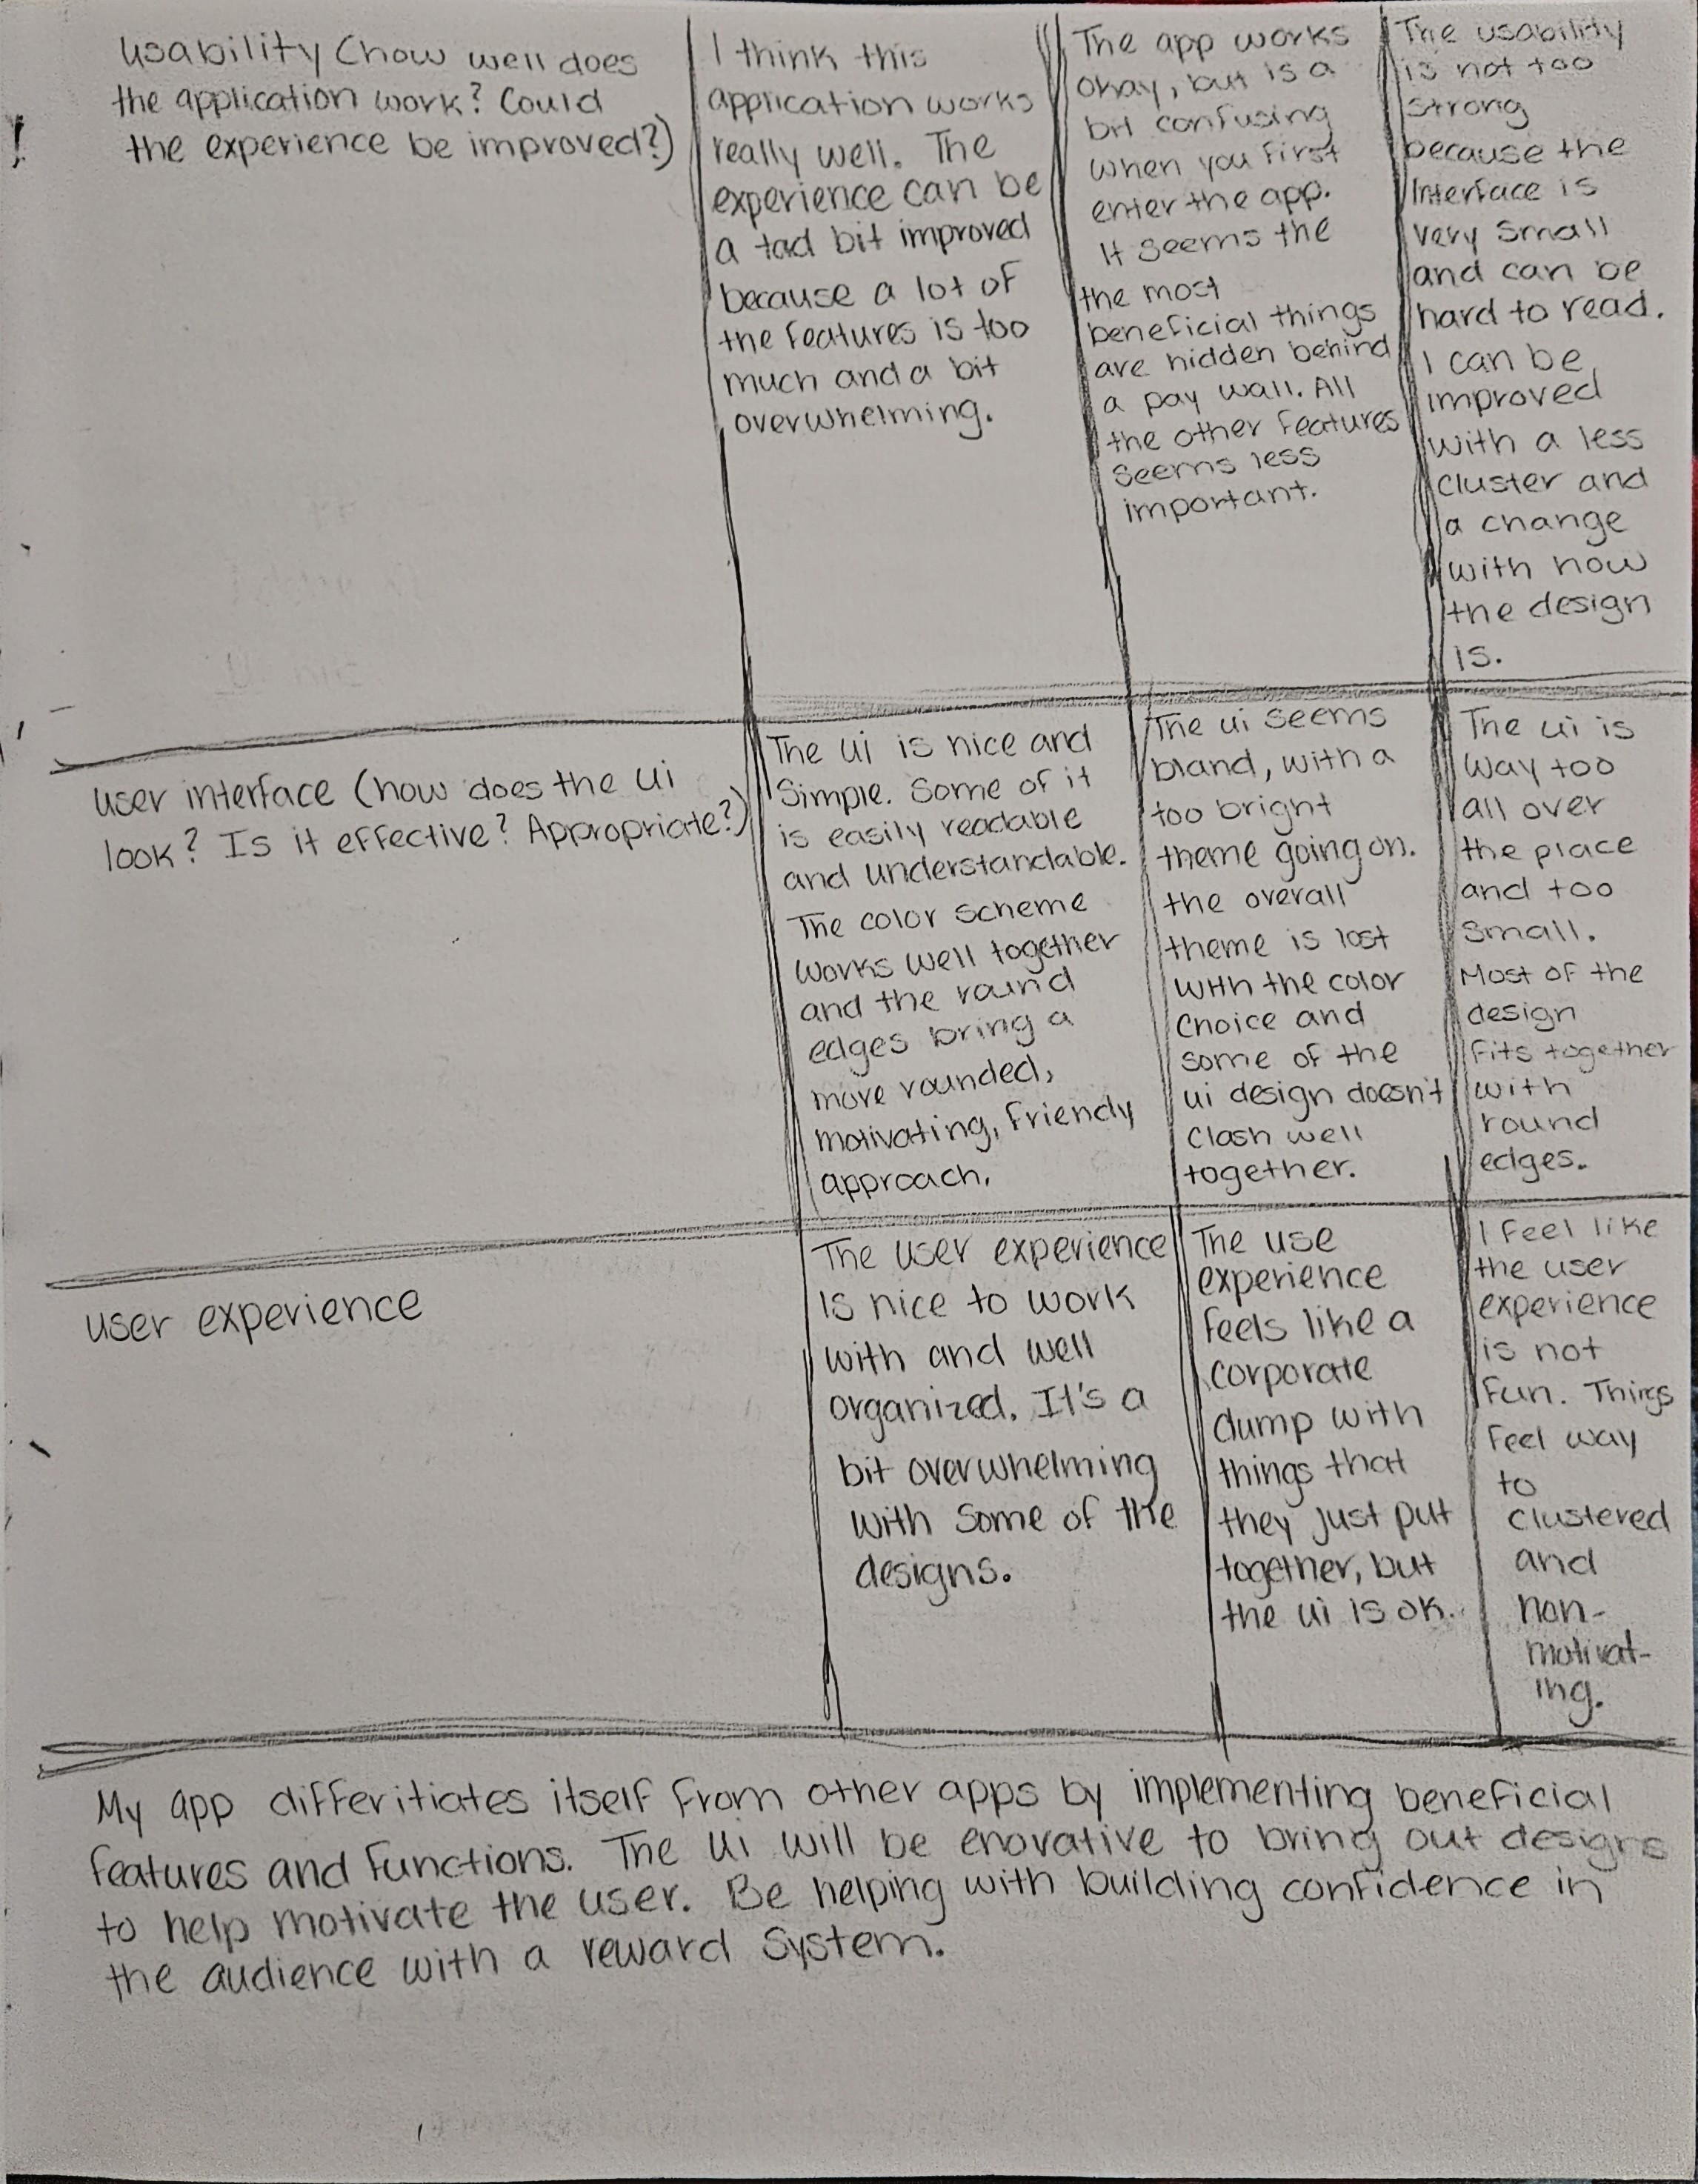 Usability (how well does
the application work? Could
the experience be improved?)
I think this
application works
really well. The
experience can be
a tad bit improved
because a lot of
the features is too
much and a bit
overwhelming.
The app works
okay, but is a
bit confusing
when you first
enter the app.
It seems the
the most
beneficial things
are hidden behind
a pay wall. All
the other features
seems less
important.
The usability
is not too
strong
because the
interface is
very small
and can be
hard to read.
I can be
improved
with a less
cluster and
a change
with how
the design
is.
user interface (how does the ui
look? Is it effective? Appropriate?)
The ui is nice and
simple. Some of it
is easily readable
and understandable.
The color scheme
works well together
and the round
edges bring a
more rounded,
motivating, friendly
approach.
The ui seems
bland, with a
too bright
theme going on.
the overall
theme is lost
with the color
choice and
some of the
ui design doesn't
clash well
together.
The ui is
way too
all over
the place
and too
small.
Most of the
design
fits together
with
round
edges.
user experience
The user experience
is nice to work
with and well
organized. It's a
bit overwhelming
with some of the
designs.
The use
experience
feels like a
corporate
dump with
things that
they just put
together, but
the ui is ok.
I feel like
the user
experience
is not
fun. Things
feel way
to
clustered
and
non-
motivat-
ing.
My app differitiates itself from other apps by implementing beneficial
features and functions. The ui will be enovative to bring out designs
to help motivate the user. Be helping with building confidence in
the audience with a reward system.